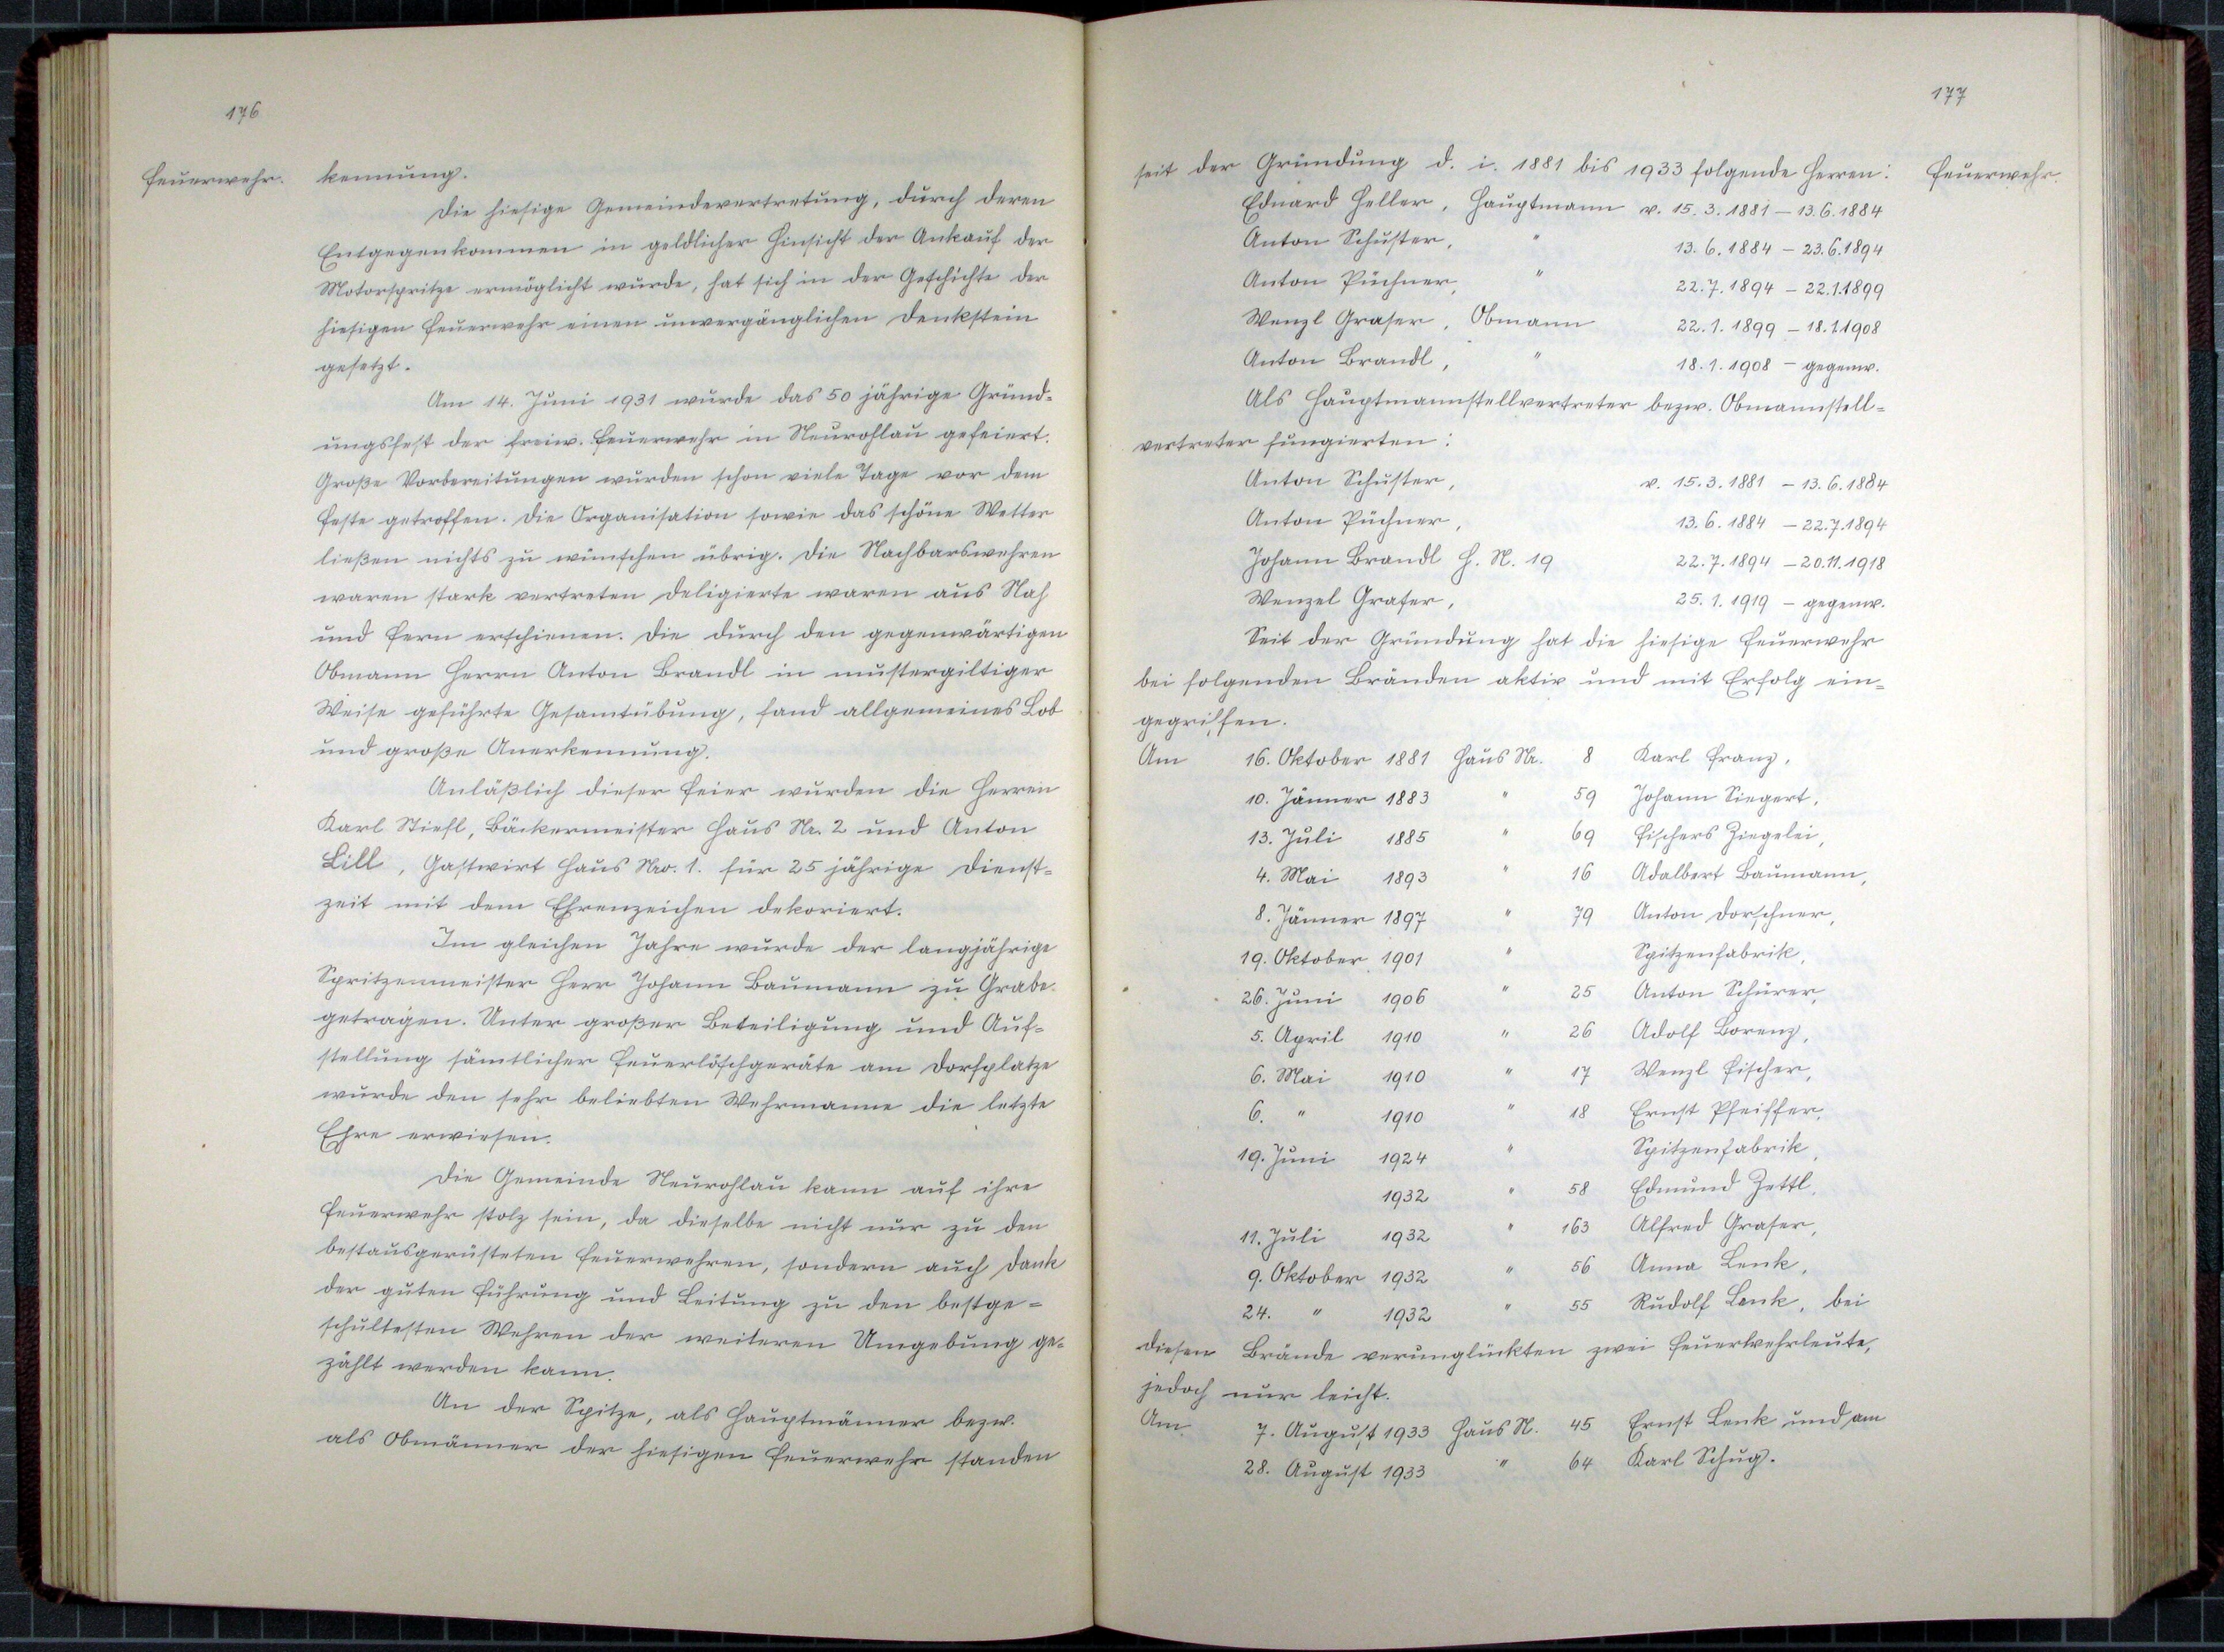 176
Feuerwehr.
kennung.
Die hiesige Gemeindevertretung, durch deren
Entgegenkommen in geldlicher Hinsicht der Ankauf der
Motorspritze ermöglicht wurde, hat sich in der Geschichte der
hiesigen Feuerwehr einen unvergänglichen Denkstein
gesetzt.
Am 14. Juni 1931 wurde das 50 jährige Gründ=
ungsfest der freiw. Feuerwehr in Neurohlau gefeiert.
Große Vorbereitungen wurden schon viele Tage vor dem
Feste getroffen. Die Organisation sowie das schöne Wetter
ließen nichts zu wünschen übrig. Die Nachbarswehren
waren stark vertreten Deligierte waren aus Nah
und Fern erschienen. Die durch den gegenwärtigen
Obmann Herrn Anton Brandl in mustergiltiger
Weise geführte Gesamtübung, fand allgemeines Lob
und große Anerkennung.
Anläßlich dieser Feier wurden die Herren
Karl Stiefl, Bäckermeister Haus Nr. 2 und Anton
Lill, Gastwirt Haus Nro. 1. für 25 jährige Dienst=
zeit mit dem Ehrenzeichen dekoriert.
Im gleichen Jahre wurde der langjährige
Spritzenmeister Herr Johann Baumann zu Grabe
getragen. Unter großer Beteiligung und Auf=
stellung sämtlicher Feuerlöschgeräte am Dorfplatze
wurde den sehr beliebten Wehrmanne die letzte
Ehre erwiesen.
Die Gemeinde Neurohlau kann auf ihre
Feuerwehr stolz sein, da dieselbe nicht nur zu den
bestausgerüsteten Feuerwehren, sondern auch Dank
der guten Führung und Leitung zu den bestge=
schultesten Wehren der weiteren Umgebung ge=
zählt werden kann.
An der Spitze, als Hauptmänner bezw.
als Obmänner der hiesigen Feuerwehr standen
177
Feuerwehr.
seit der Gründung d. i. 1881 bis 1933 folgende Herren:
Eduard Heller, Hauptmann v. 15. 3. 1881 – 13. 6. 1884
Anton Schuster, " 13. 6. 1884 – 23. 6. 1894
Anton Püchner, " 22. 7. 1894 – 22. 1. 1899
Wenzl Graser, Obmann 22. 1. 1899 – 18. 1. 1908
Anton Brandl, " 18. 1. 1908 – gegenw.
Als Hauptmannstellvertreter bezw. Obmannstell=
vertreter fungierten:
Anton Schuster, v. 15. 3. 1881 – 13. 6. 1884
Anton Püchner, 13. 6. 1884 – 22. 7. 1894
Johann Brandl H. N. 19 22. 7. 1894 – 20. 11. 1918
Wenzel Graser, 25. 1. 1919 – gegenw.
Seit der Gründung hat die hiesige Feuerwehr
bei folgenden Bränden aktiv und mit Erfolg ein=
gegriffen.
Am 16. Oktober 1881 Haus Nr. 8 Karl Franz,
10. Jänner 1883 " 59 Johann Siegert,
13. Juli 1885 " 69 Fischers Ziegelei,
4. Mai 1893 " 16 Adalbert Baumann,
8. Jänner 1897 " 79 Anton Dorschner,
19. Oktober 1901 " Spitzenfabrik,
26. Juni 1906 " 25 Anton Schürer,
5. April 1910 " 26 Adolf Lorenz,
6. Mai 1910 " 17 Wenzl Fischer,
6. " 1910 " 18 Ernst Pfeiffer,
19. Juni 1924 " Spitzenfabrik,
1932 " 58 Edmund Zettl,
11. Juli 1932 " 163 Alfred Graser,
9. Oktober 1932 " 56 Anna Lenk,
24. " 1932 " 55 Rudolf Lenk, bei
diesen Brände verunglückten zwei Feuerwehrleute,
jedoch nur leicht.
Am 7. August 1933 Haus N. 45 Ernst Lenk und am
28. August 1933 " 64 Karl Schug.